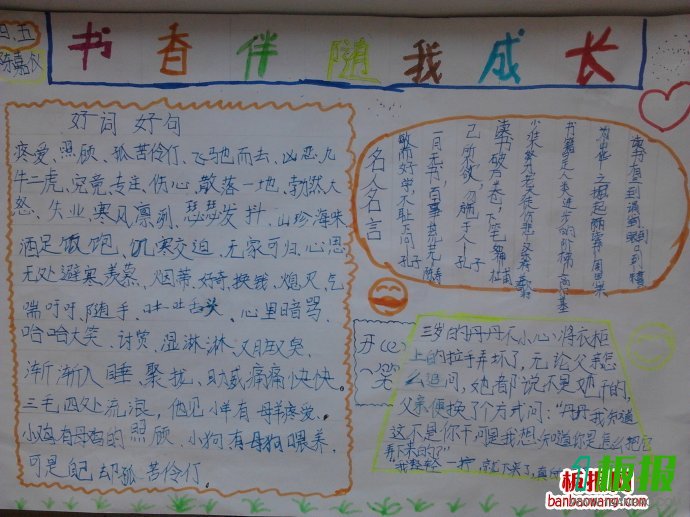 四.五
书香伴随我成长
好词 好句
疼爱、照顾、孤苦伶仃、飞驰而去、凶恶、九
牛二虎、究竟、专注、伤心、散落一地、勃然大
怒、失业、寒风凛冽、瑟瑟发抖、山珍海味
酒足饭饱、饥寒交迫、无家可归、心思
无处避寒、羡慕、烟蒂、好奇、换钱、熄灭、气
喘吁吁、随手、吐吐舌头、心里暗骂、
哈哈大笑、讨赏、湿淋淋、又脏又臭、
渐渐入睡、聚拢、助威、痛痛快快。
三毛四处流浪,他见小羊有母羊疼爱。
小鸡有母鸡的照顾,小狗有母狗喂养,
可是自己却孤苦伶仃。
名人名言
读书有三到谓心到眼到口到 朱熹
为中华之崛起而读书 周恩来
书籍是人类进步的阶梯 高尔基
读书破万卷,下笔如有神 杜甫
己所欲,勿施于人 孔子
一日无书,百事荒芜 陈寿
敏而好学不耻下问 孔子
开心
一笑
三岁的丹丹不小心将衣柜
上的拉手弄坏了,无论父亲怎
么追问,她都说不是她干的,
父亲便换了个方式问:“丹丹我知道
这不是你干的可是我想知道你是怎么把它
弄下来的?”
“我轻轻一拧,就下来了,真
板报
板报网
banbaowang.com